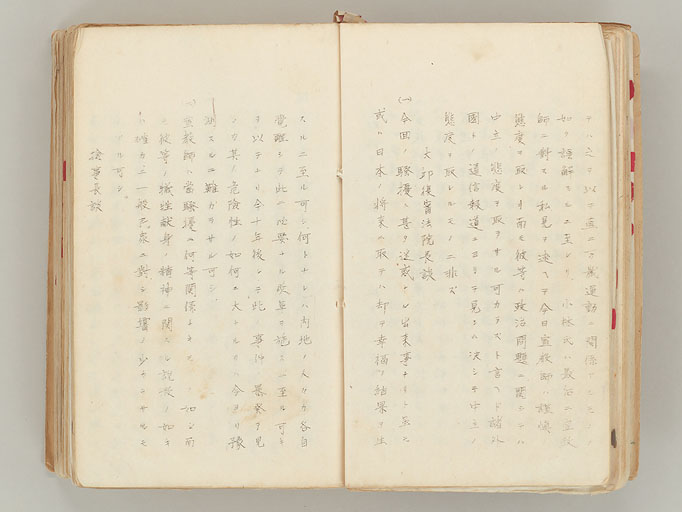 テハ之ヲ以テ直ニ
運動ニ関係
如ク誤解スルニ至レリ小林氏ハ最近ニ宣教
師ニ対スル私見ヲ述ヘテ今日宣教師ハ謹慎
態度ヲ取レリ而モ彼等ハ政治問題ニ関シテハ
中立ノ態度ヲ取ラサル可カラスト言ヘド諸外
国ヨリノ通信報道ニヨリテ見ルニ決シテ中立ノ
態度ヲ取レルモノニ非ズ
大邱覆審法院長談
(一)今回ノ騒擾ハ甚タ迷惑ナル出来事ナート雖モ
或ハ日本ノ将来ニ取テハ却テ幸福ナ結果ヲ生
スルニ至ル可シ何トナレハ内地ノ人々カ各自
覚醒シテ此ノ必要ナル改革ヲ施スニ至ル可キ
ヲ以テナリ今十年後レテ此ノ事件暴発ヲ見
ンカ其ノ危険性ノ如何ニ大ナルカハ今ヨリ予
測スルニ難カラサル可シ
(一)宣教師ハ当騒擾ニ何等関係ナキモ
而
モ彼等ノ犠牲献身ノ精神ニ関スル説教ノ如キ
ハ確カニ一般民衆ニ対シ影響ノ少ナカラサルモ
アル可シ。
検事長談